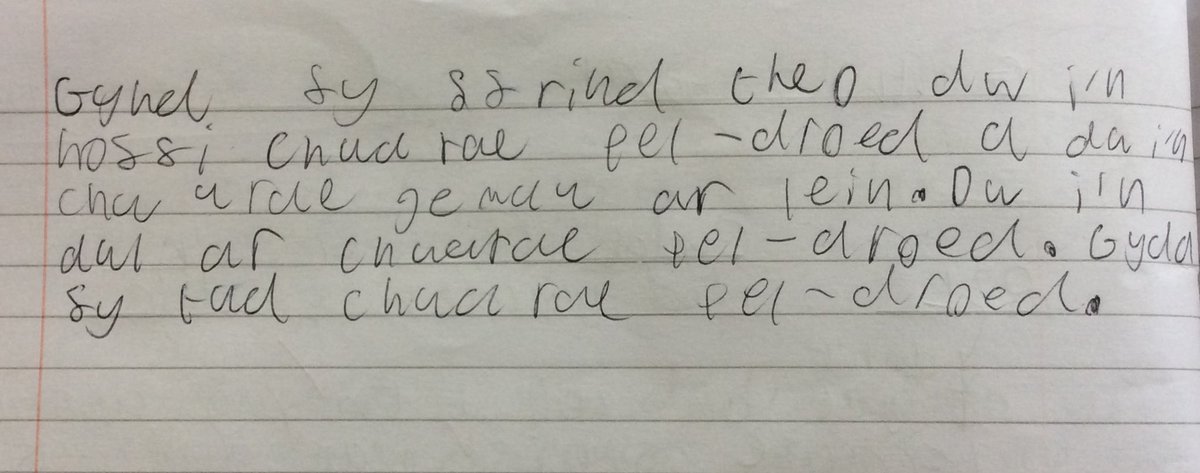 Gyhel fy ffrind theo dw i'n
hoffi chuad rae pel-droed a da i'n
chu urae gemau ar lein. Dw i'n
dal ar chueurae pel-droed. Gyda
fy tad chuarae pel-droed.